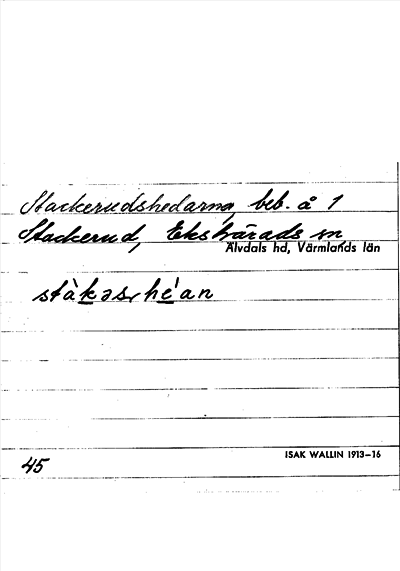 Stackerudshedarna, beb. å 1
Stackerud, Ekshärads sn
Älvdals hd, Värmlands län
stàkəsrhéan
45
ISAK WALLIN 1913–16